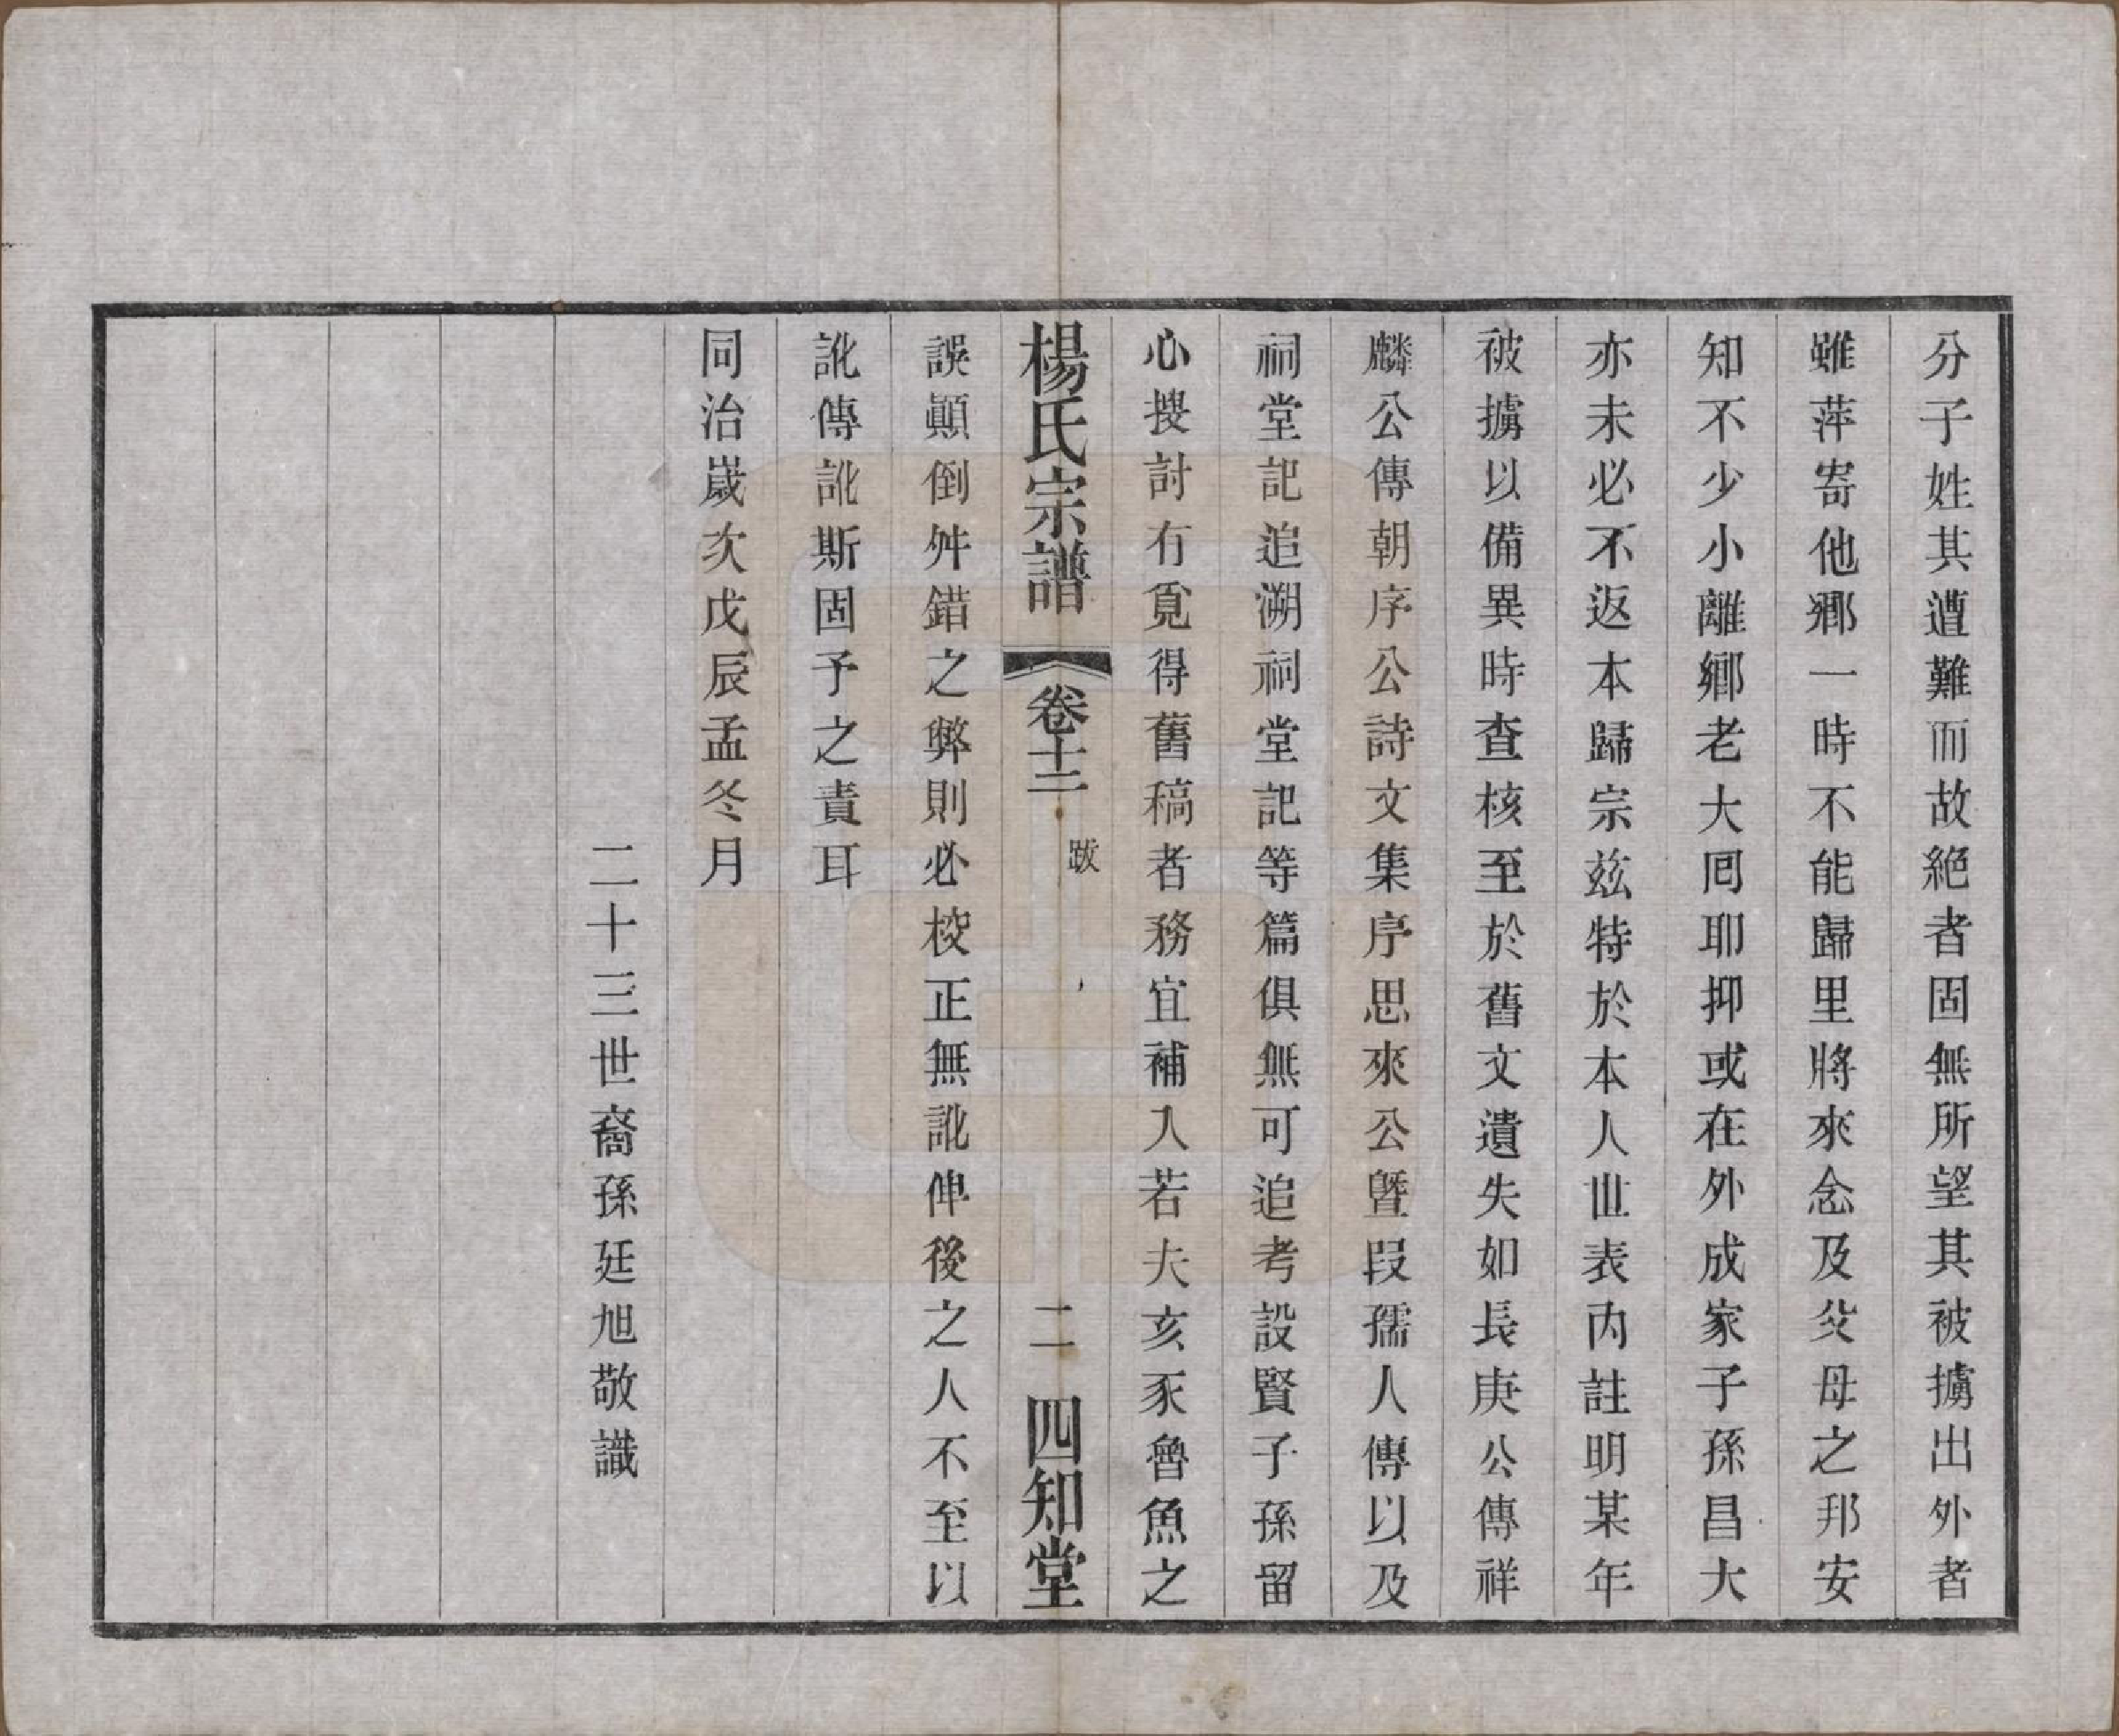 分子姓其遭難而故絕者固無所望其被擄出外者
雖萍寄他鄉一時不能歸里將來念及父母之邦安
知不少小離鄉老大囘耶抑或在外成家子孫昌大
亦未必不返本歸宗茲特於本人世表內註明某年
被擄以備異時查核至於舊文遺失如長庚公傳祥
麟公傳朝序公詩文集序思來公曁段孺人傳以及
祠堂記追溯祠堂記等篇俱無可追考設賢子孫留
心搜討有覓得舊稿者務宜補入若夫亥豕魯魚之
楊氏宗譜 卷十二 跋 二 四知堂
誤顚倒舛錯之弊則必校正無訛俾後之人不至以
訛傳訛斯固予之責耳
同治歲次戊辰孟冬月
二十三世裔孫廷旭敬識